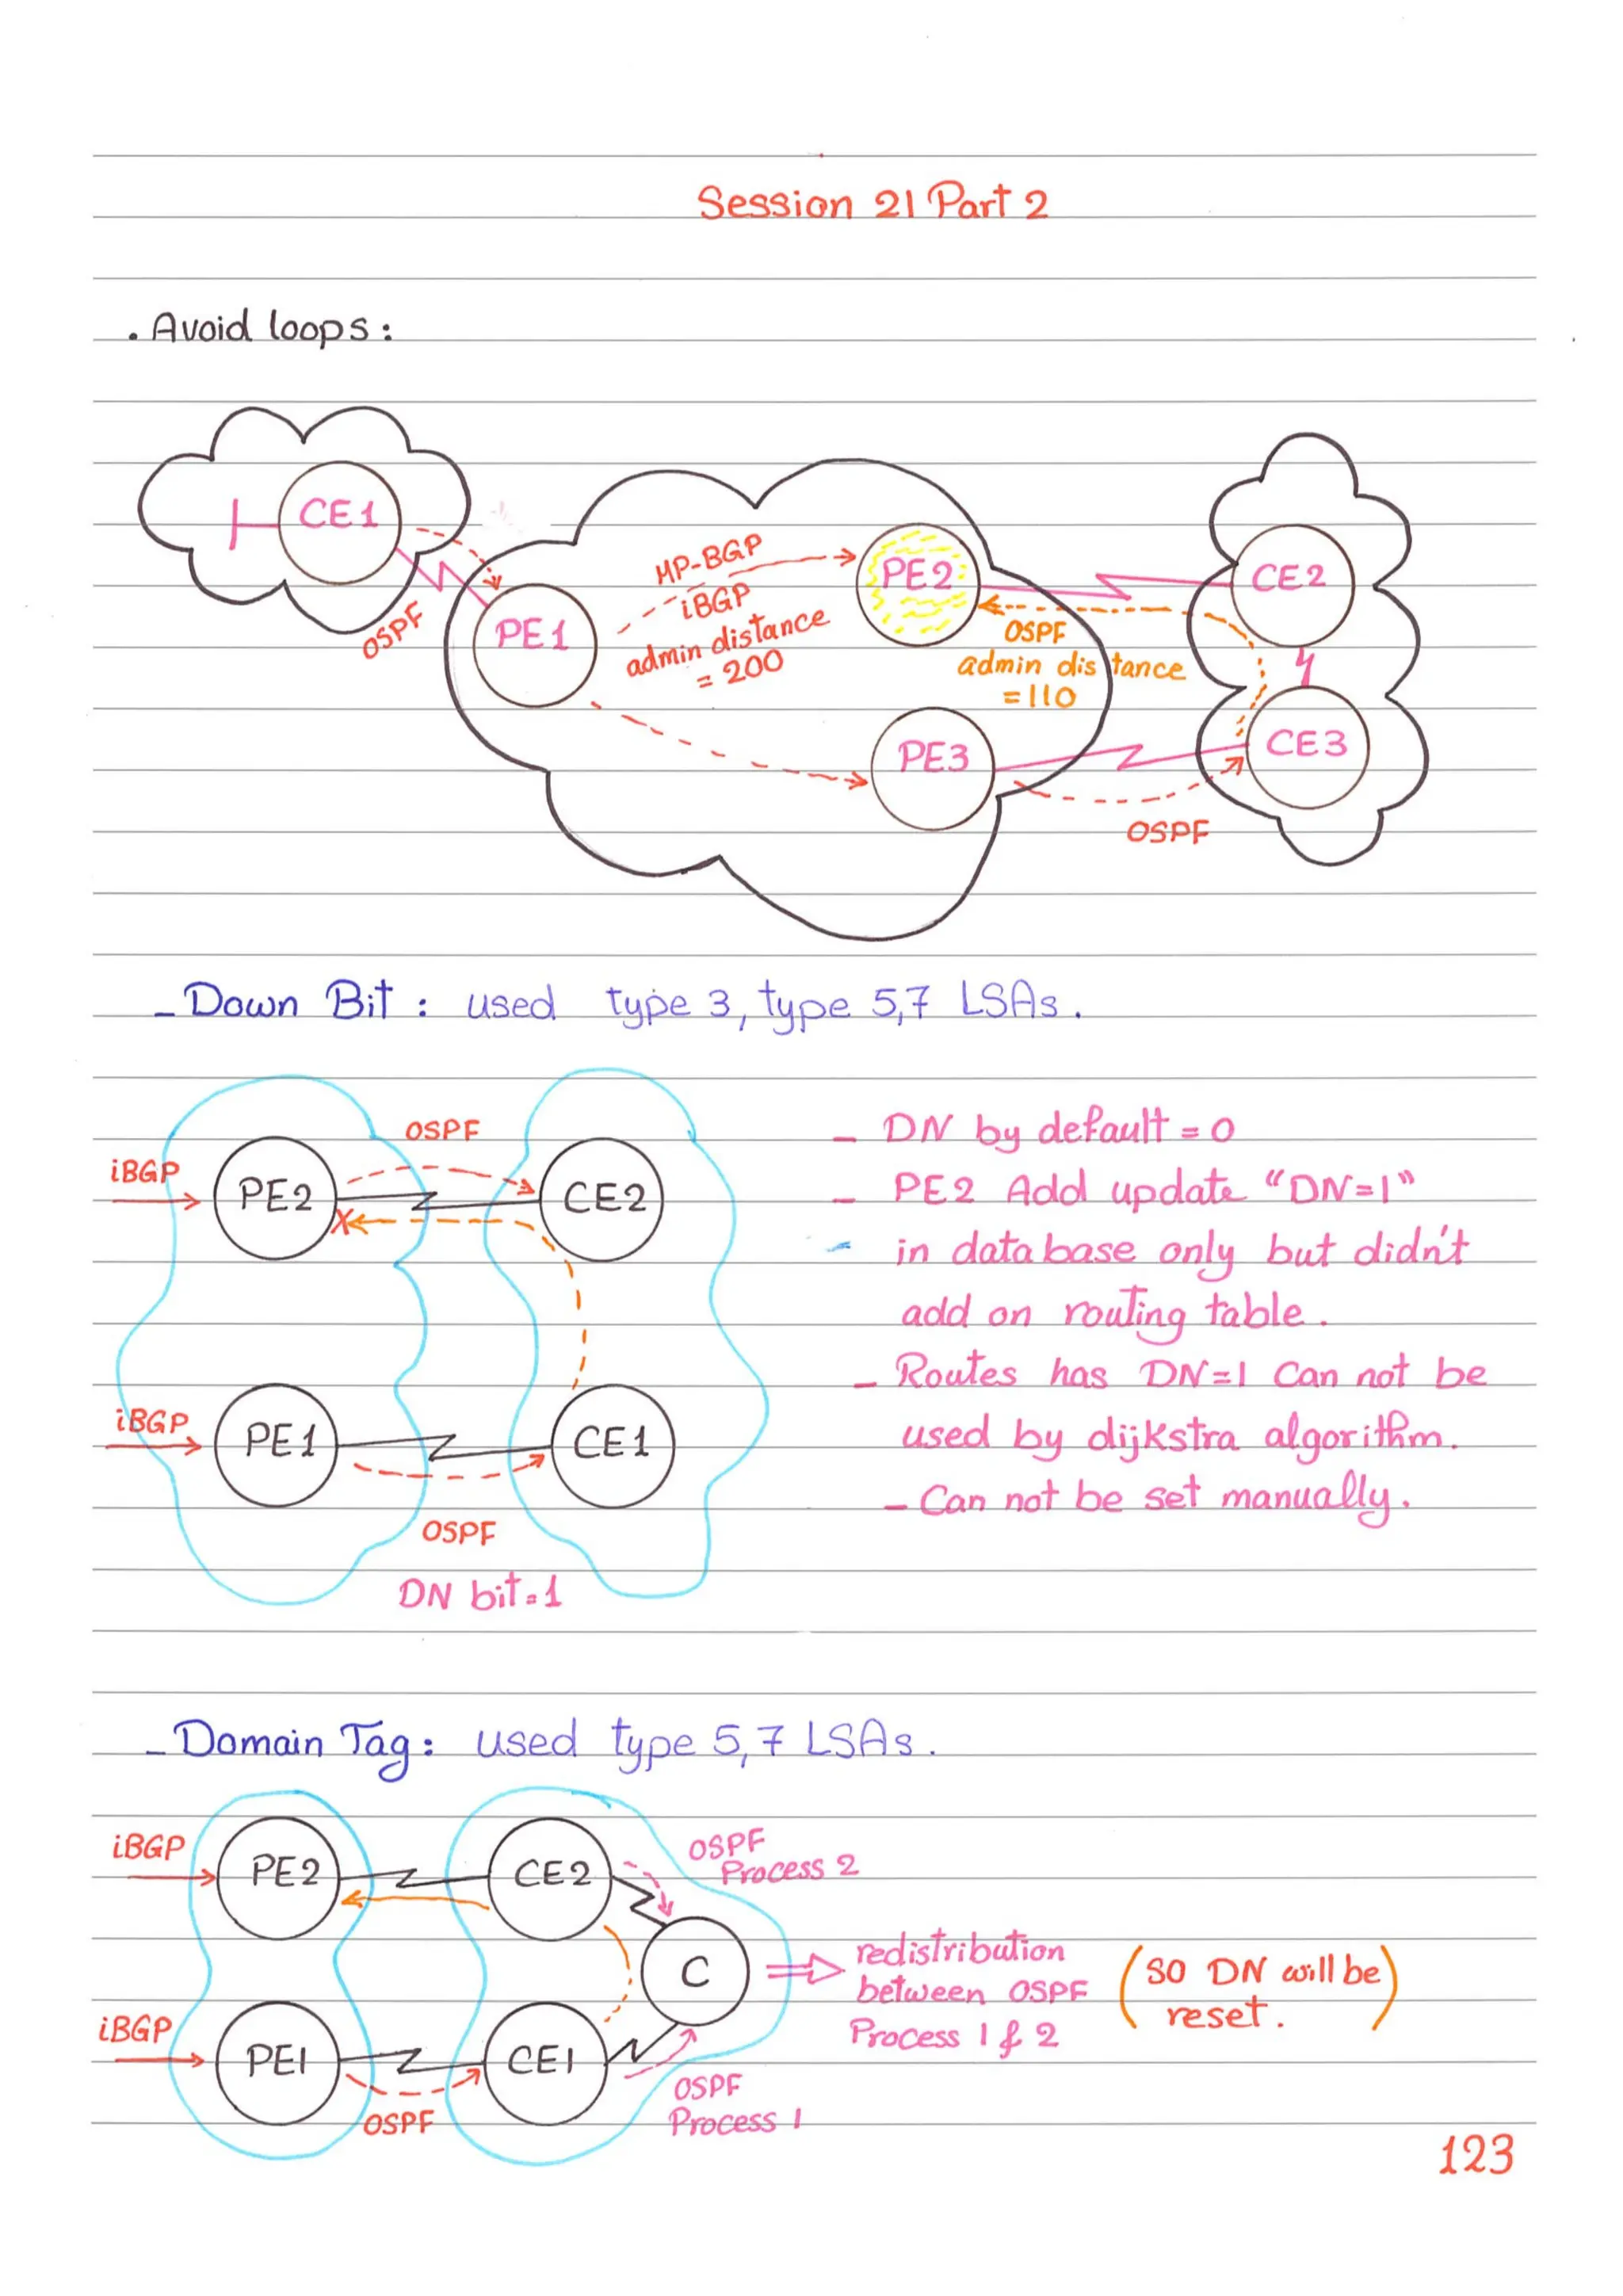 Session 21 Part 2
. Avoid loops :
CE1
OSPF
PE1
MP-BGP
iBGP
admin distance
= 200
PE2
OSPF
admin distance
=110
CE2
PE3
CE3
OSPF
- Down Bit : used type 3, type 5,7 LSAs.
iBGP
PE2
OSPF
CE2
iBGP
PE1
CE1
OSPF
DN bit=1
- DN by default = 0
- PE2 Add update "DN=1"
- in data base only but didn't
add on routing table.
- Routes has DN=1 Can not be
used by dijkstra algorithm.
- Can not be set manually.
- Domain Tag: used type 5,7 LSAs.
iBGP
PE2
CE2
OSPF
Process 2
C
redistribution
between OSPF
Process 1 & 2
(SO DN will be
reset.)
iBGP
PE1
OSPF
CE1
OSPF
Process 1
123